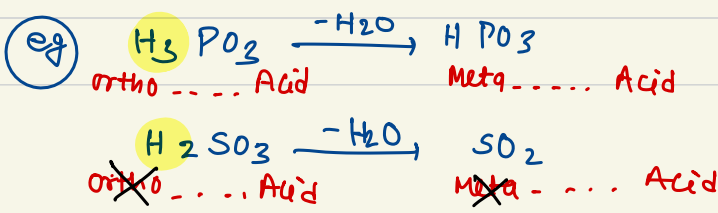 eg H3 PO3 -H2O→ H PO3
ortho ..... Acid Meta ...... Acid
H2 SO3 -H2O→ SO2
ortho ..... Acid Meta - .... Acid